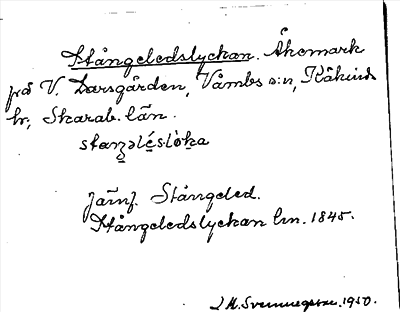 Stångeledslyckan. Åkermark
på V. Larsgården, Våmbs s:n, Kåkinds
hr, Skarab. län.

jämf. Stångeled.
Stångeledslyckan lm. 1845.
1950.